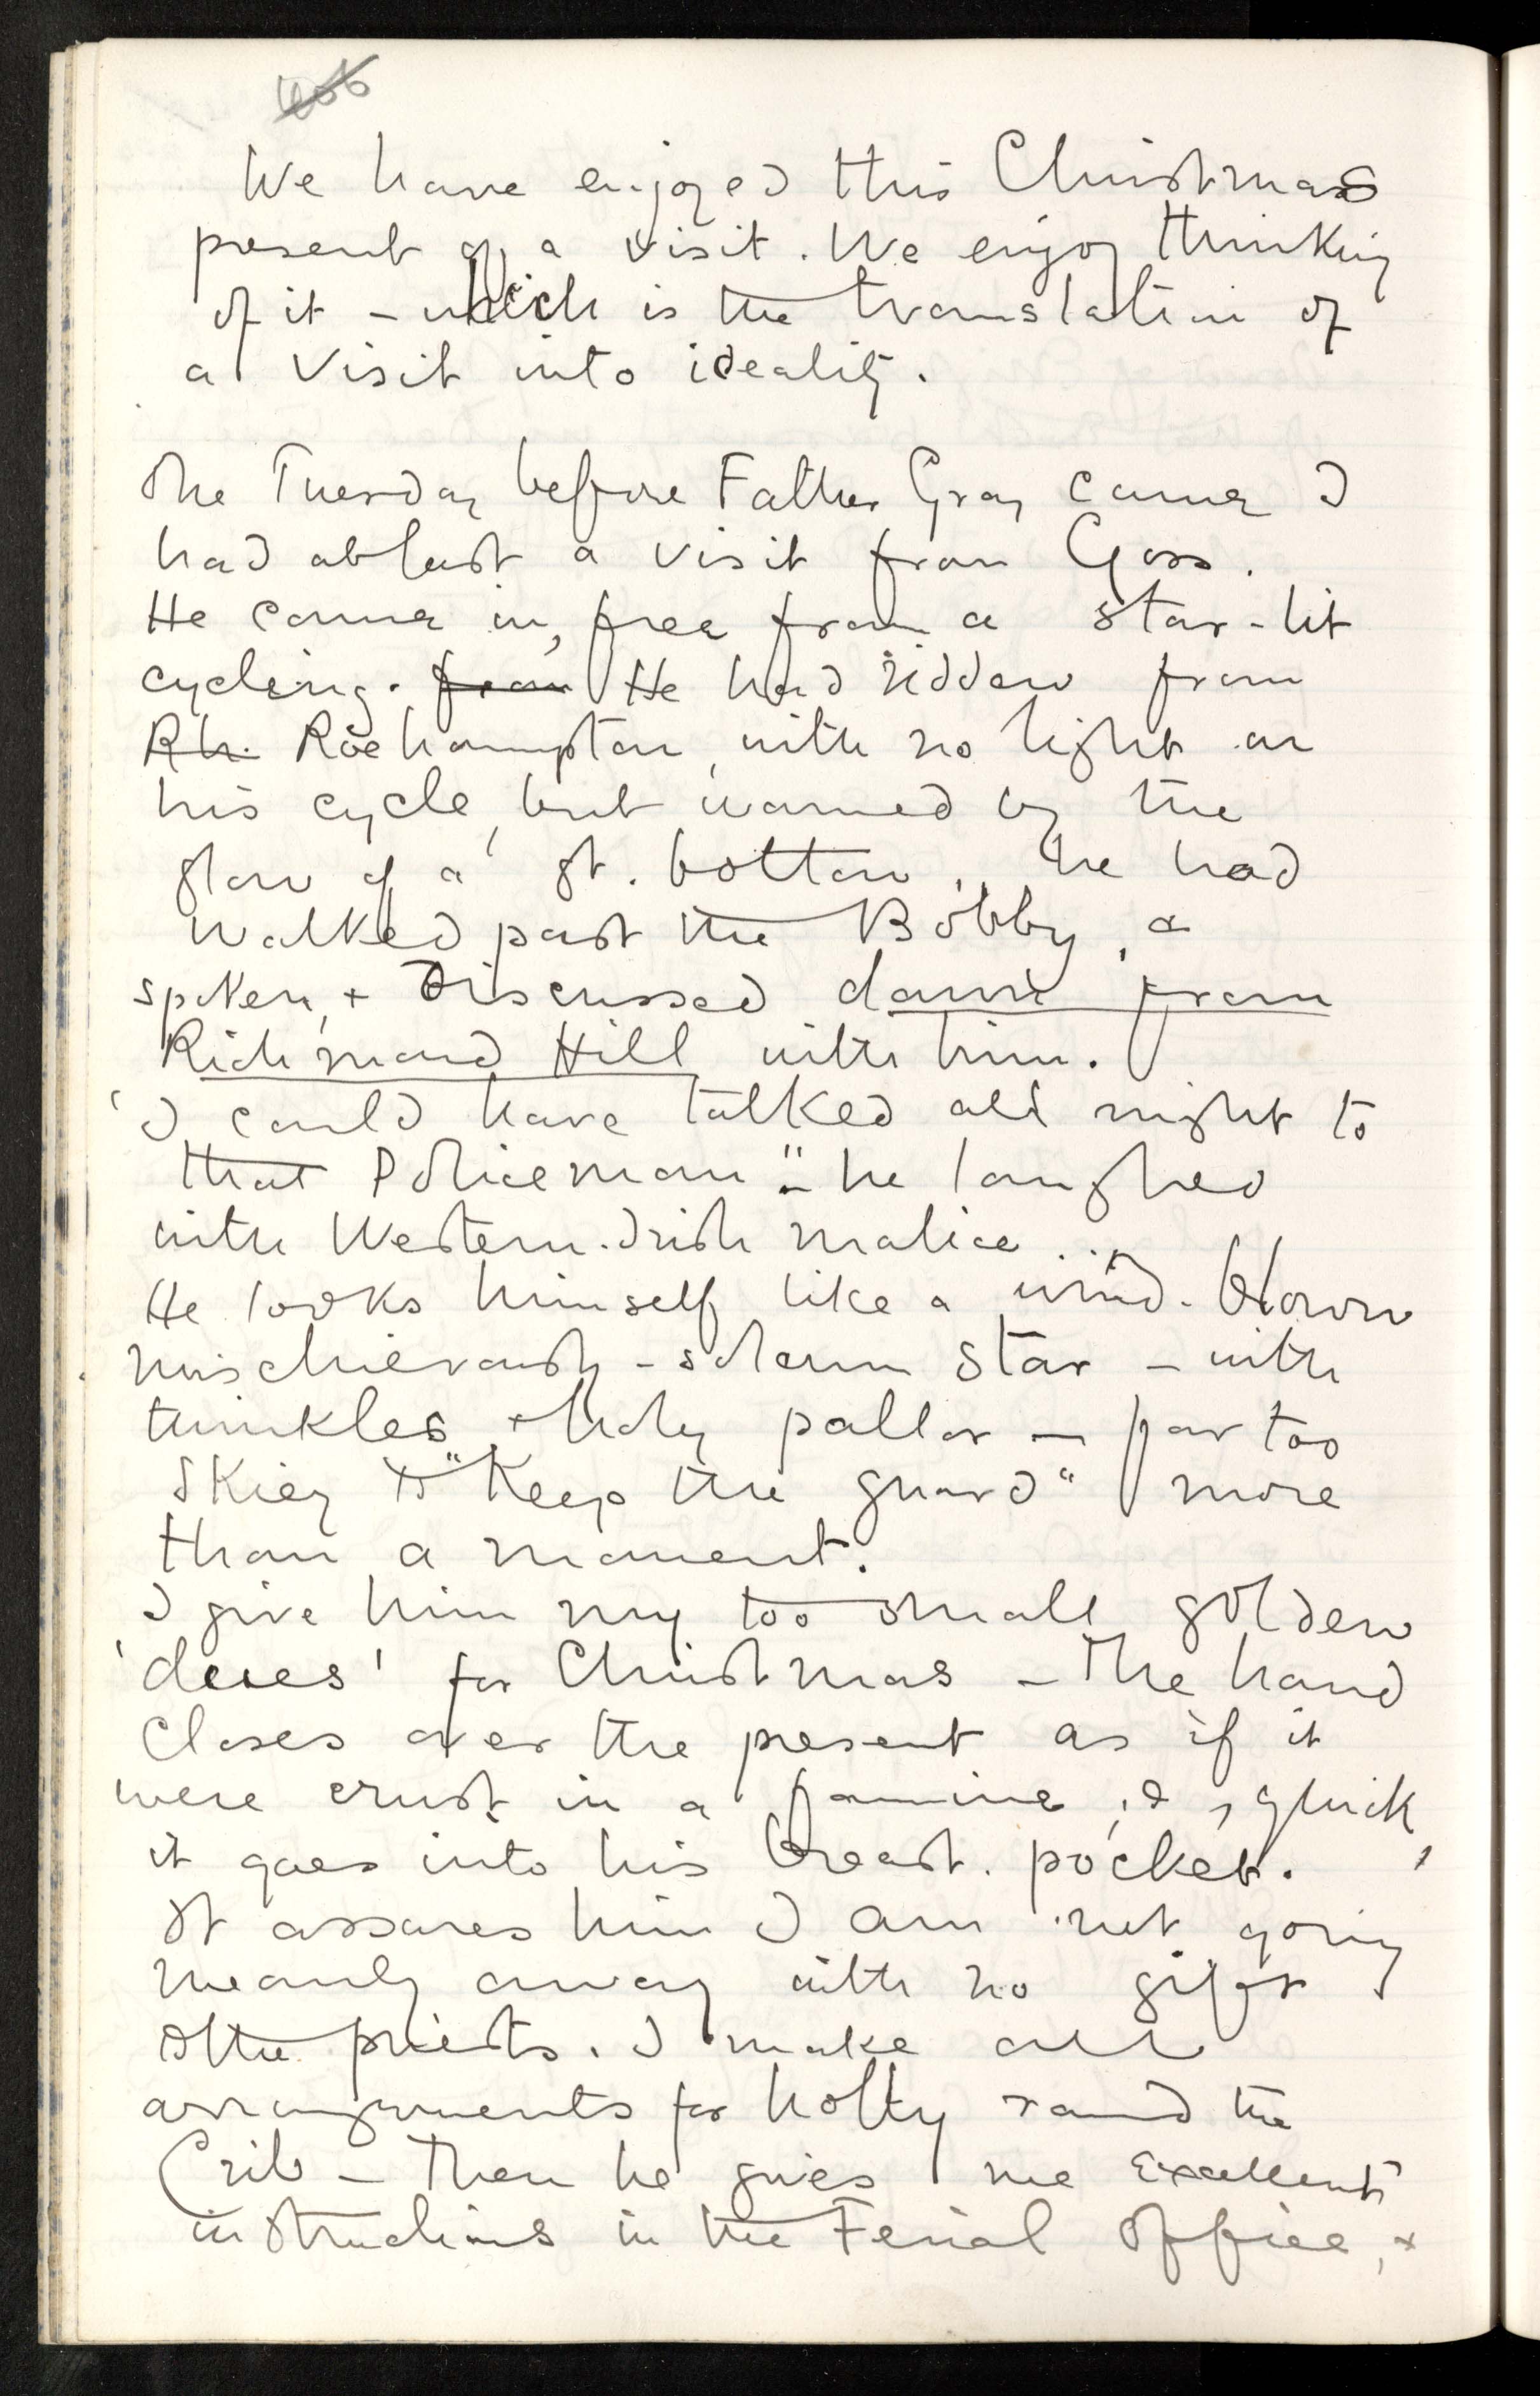 We have enjoyed this Christmas
present of a visit. We enjoy thinking
of it – which is the translation of
a visit into ideality.
The Tuesday before Father Gray came I
had at last a visit from Goss.
He came in, free from a star-lit
cycling. from He had ridden from
Rh. Roehampton, with no light on
his cycle, but warned by the
glow of a st. bottom, he had
walked past the Bobby, &
spoken, + discussed down from
Richmond Hill with him.
'I could have talked all night to
that Policeman" – he laughed
with Western-Irish malice...
He looks himself like a wind-blown
mischievously-solemn star – with
twinkles + holy pallor – far too
Skiey to "Keep the guard" more
than a moment.
I give him my too small golden
'deies' for Christmas – The hand
closes over the present as if it
were crust in a famine, & , quick,
it goes into his breast-pocket.
It assures him I am not going
meanly away with no gift
to the priests. I make all
arrangements for holly round the
Crib – Then he gives me excellent
instructions in the Ferial Office, +